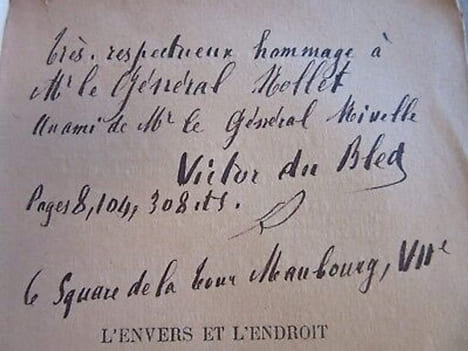 Très respectueux hommage à
Mr le Général Mollet
Un ami de Mr le Général Nivelle
Victor du Bled
Pages 8, 104, 308 ets.
6 Square de la Tour Maubourg, VIIe
L'ENVERS ET L'ENDROIT